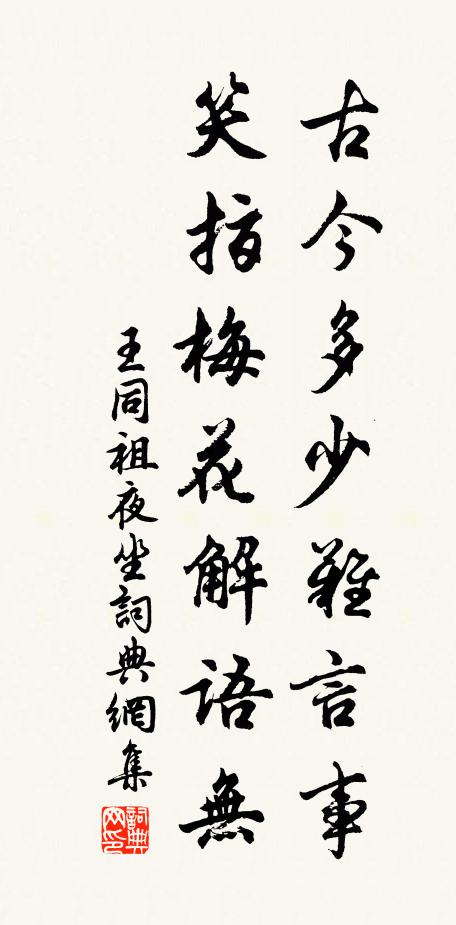 古今多少難言事
笑指梅花解語無
王同祖夜坐詞典網集
詞典网印